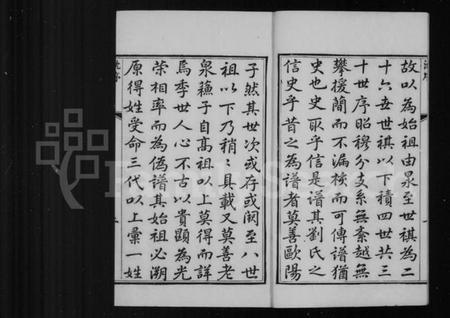 故以為始祖由泉至世祺為二
十六五世祺以下積四世共三
十世序昭穆分支系無紊越無
攀援簡而不漏核而可傳譜猶
史也史取乎信是譜其劉氏之
信史乎昔之為譜者莫善歐陽
子然其世次或存或闕至八世
祖以下乃稍〻具載又莫善老
泉蘓子自高祖以上莫得而詳
焉季世人心不古以貴顯為光
榮相率而為偽譜其始祖必溯
原得姓受命三代以上彙一姓